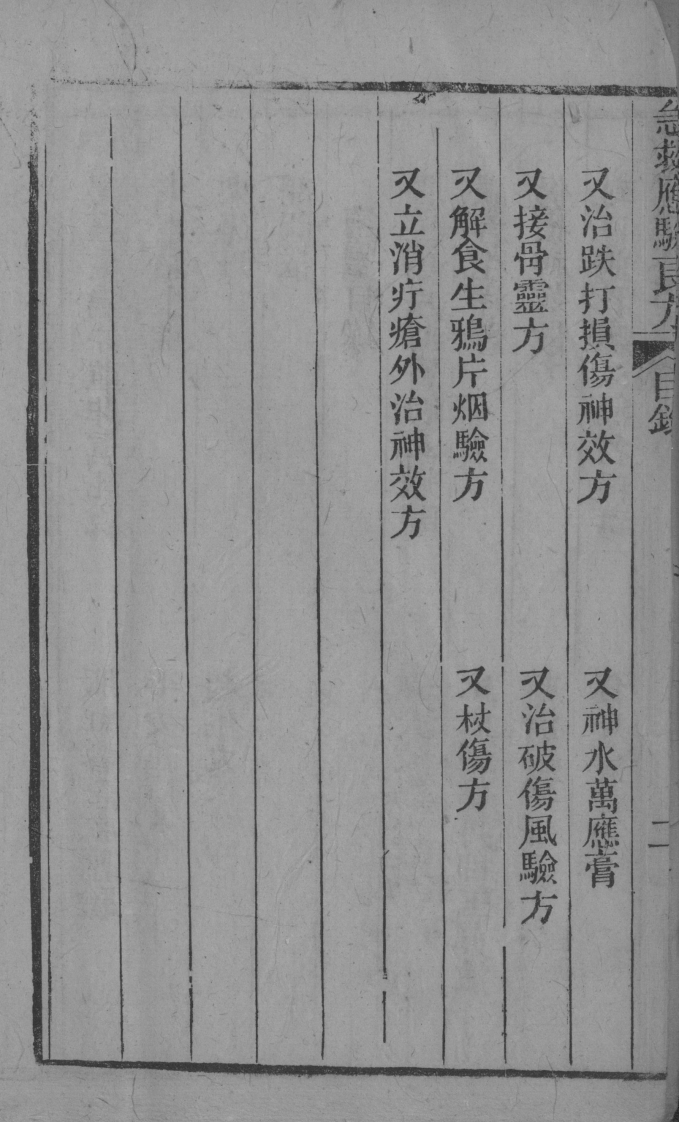 急救應驗良方 目錄 二
又治跌打損傷神效方 又神水萬應膏
又接骨靈方 又治破傷風驗方
又解食生鴉片烟驗方 又杖傷方
又立消疔瘡外治神效方